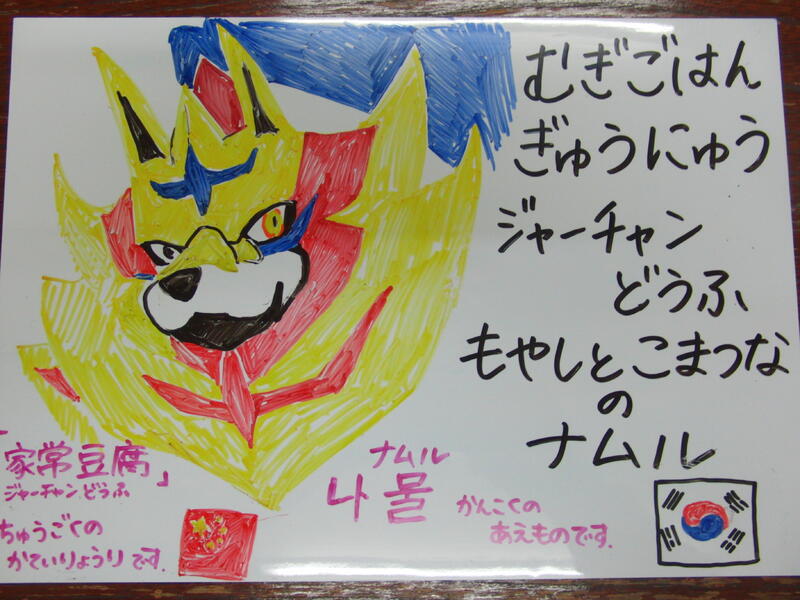 むぎごはん
ぎゅうにゅう
ジャーチャン
どうふ
もやしとこまつな
の
ナムル
「家常豆腐」
ジャーチャンどうふ
ちゅうごくの
かていりょうりです.
ナムル
나물
かんこくの
あえものです.